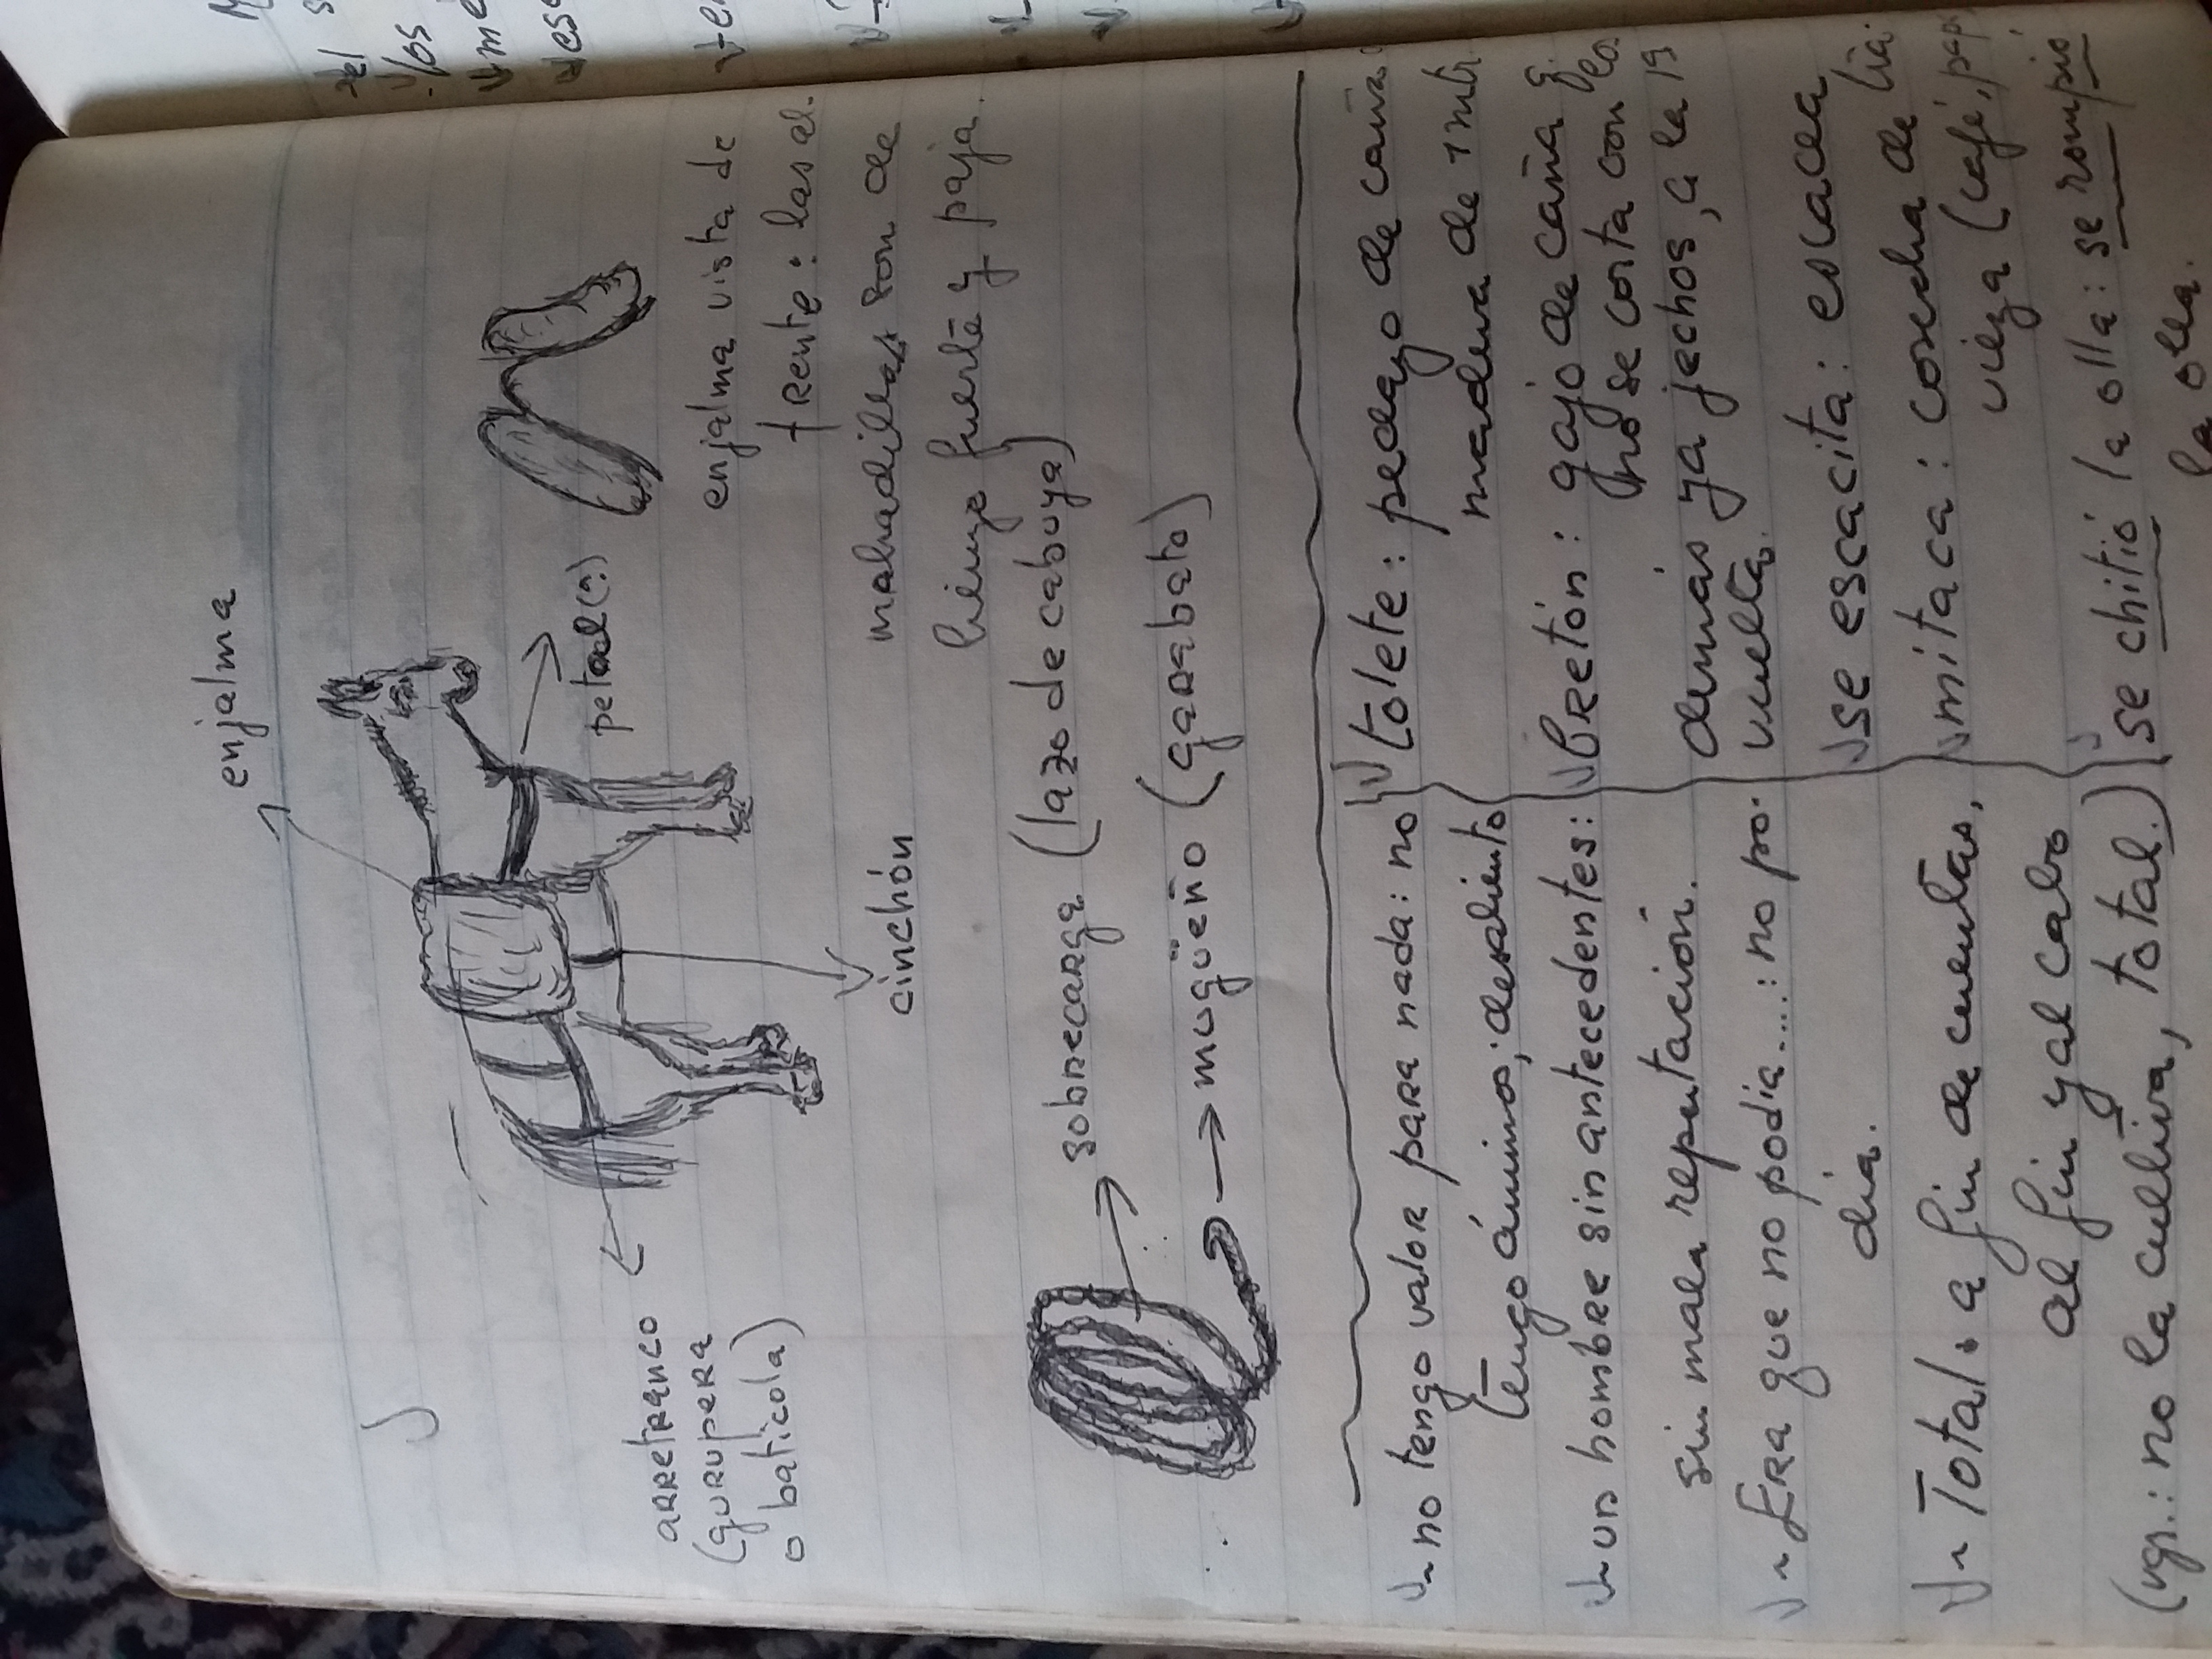 enjalma
petral(?)
arretranco
(gurupera
o baticola)
cinchón
enjalma vista de
frente: las al.
mohadillas son de
lienzo fuerte y paja.
sobrecarga (lazo de cabuya)
mugüeño (garabato)
~ no tengo valor para nada: no
tengo ánimos; desaliento
~ un hombre sin antecedentes:
sin mala reputación.
~ Era que no podía....: no po.
día.
~ Total: a fin de cuentas,
al fin y al cabo
(vgr.: no la cultiva, total.)
tolete: pedazo de caña o
madera de 1 mtr
bretón: gajo de caña q.
no se corta con los
demás ya jechos, a la 1ª
vuelta.
se escacita: escacea
mitaca: cosecha de tra.
vieza (café, pap
se chitió la olla: se rompió
la olla.